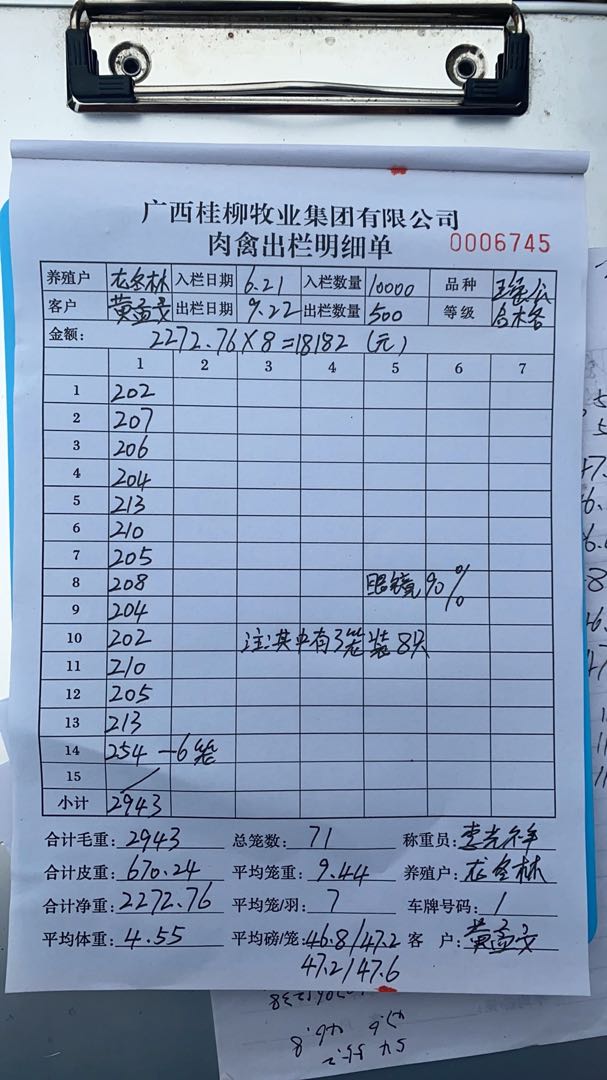 广西桂柳牧业集团有限公司
肉禽出栏明细单 0006745
养殖户 龙全林 入栏日期 6.21 入栏数量 10000 品种
客户 黄孟文 出栏日期 9.22 出栏数量 500 等级 合格
金额: 2272.76×8=18182 (元)
1 2 3 4 5 6 7
1 202
2 207
3 206
4 204
5 213
6 210
7 205
8 208 眼镜90%
9 204
10 202 注:其中有3笼装8只
11 210
12 205
13 213
14 254 —6笼
15
小计 2943
合计毛重: 2943 总笼数: 71 称重员:
合计皮重: 670.24 平均笼重: 9.44 养殖户: 龙全林
合计净重: 2272.76 平均笼/羽: 7 车牌号码: /
平均体重: 4.55 平均磅/笼: 46.8/47.2 客 户: 黄孟文
47.2/47.6